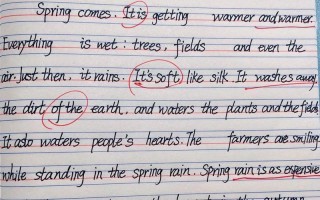 Spring comes. It is getting warmer and warmer.
Everything is wet: trees, fields and even the
air. Just then, it rains. It's soft like silk. It washes away
the dirt of the earth. and waters the plants and the fields
It aslo waters people's hearts. The farmers are smiling
while standing in the spring rain. Spring rain is as expensive